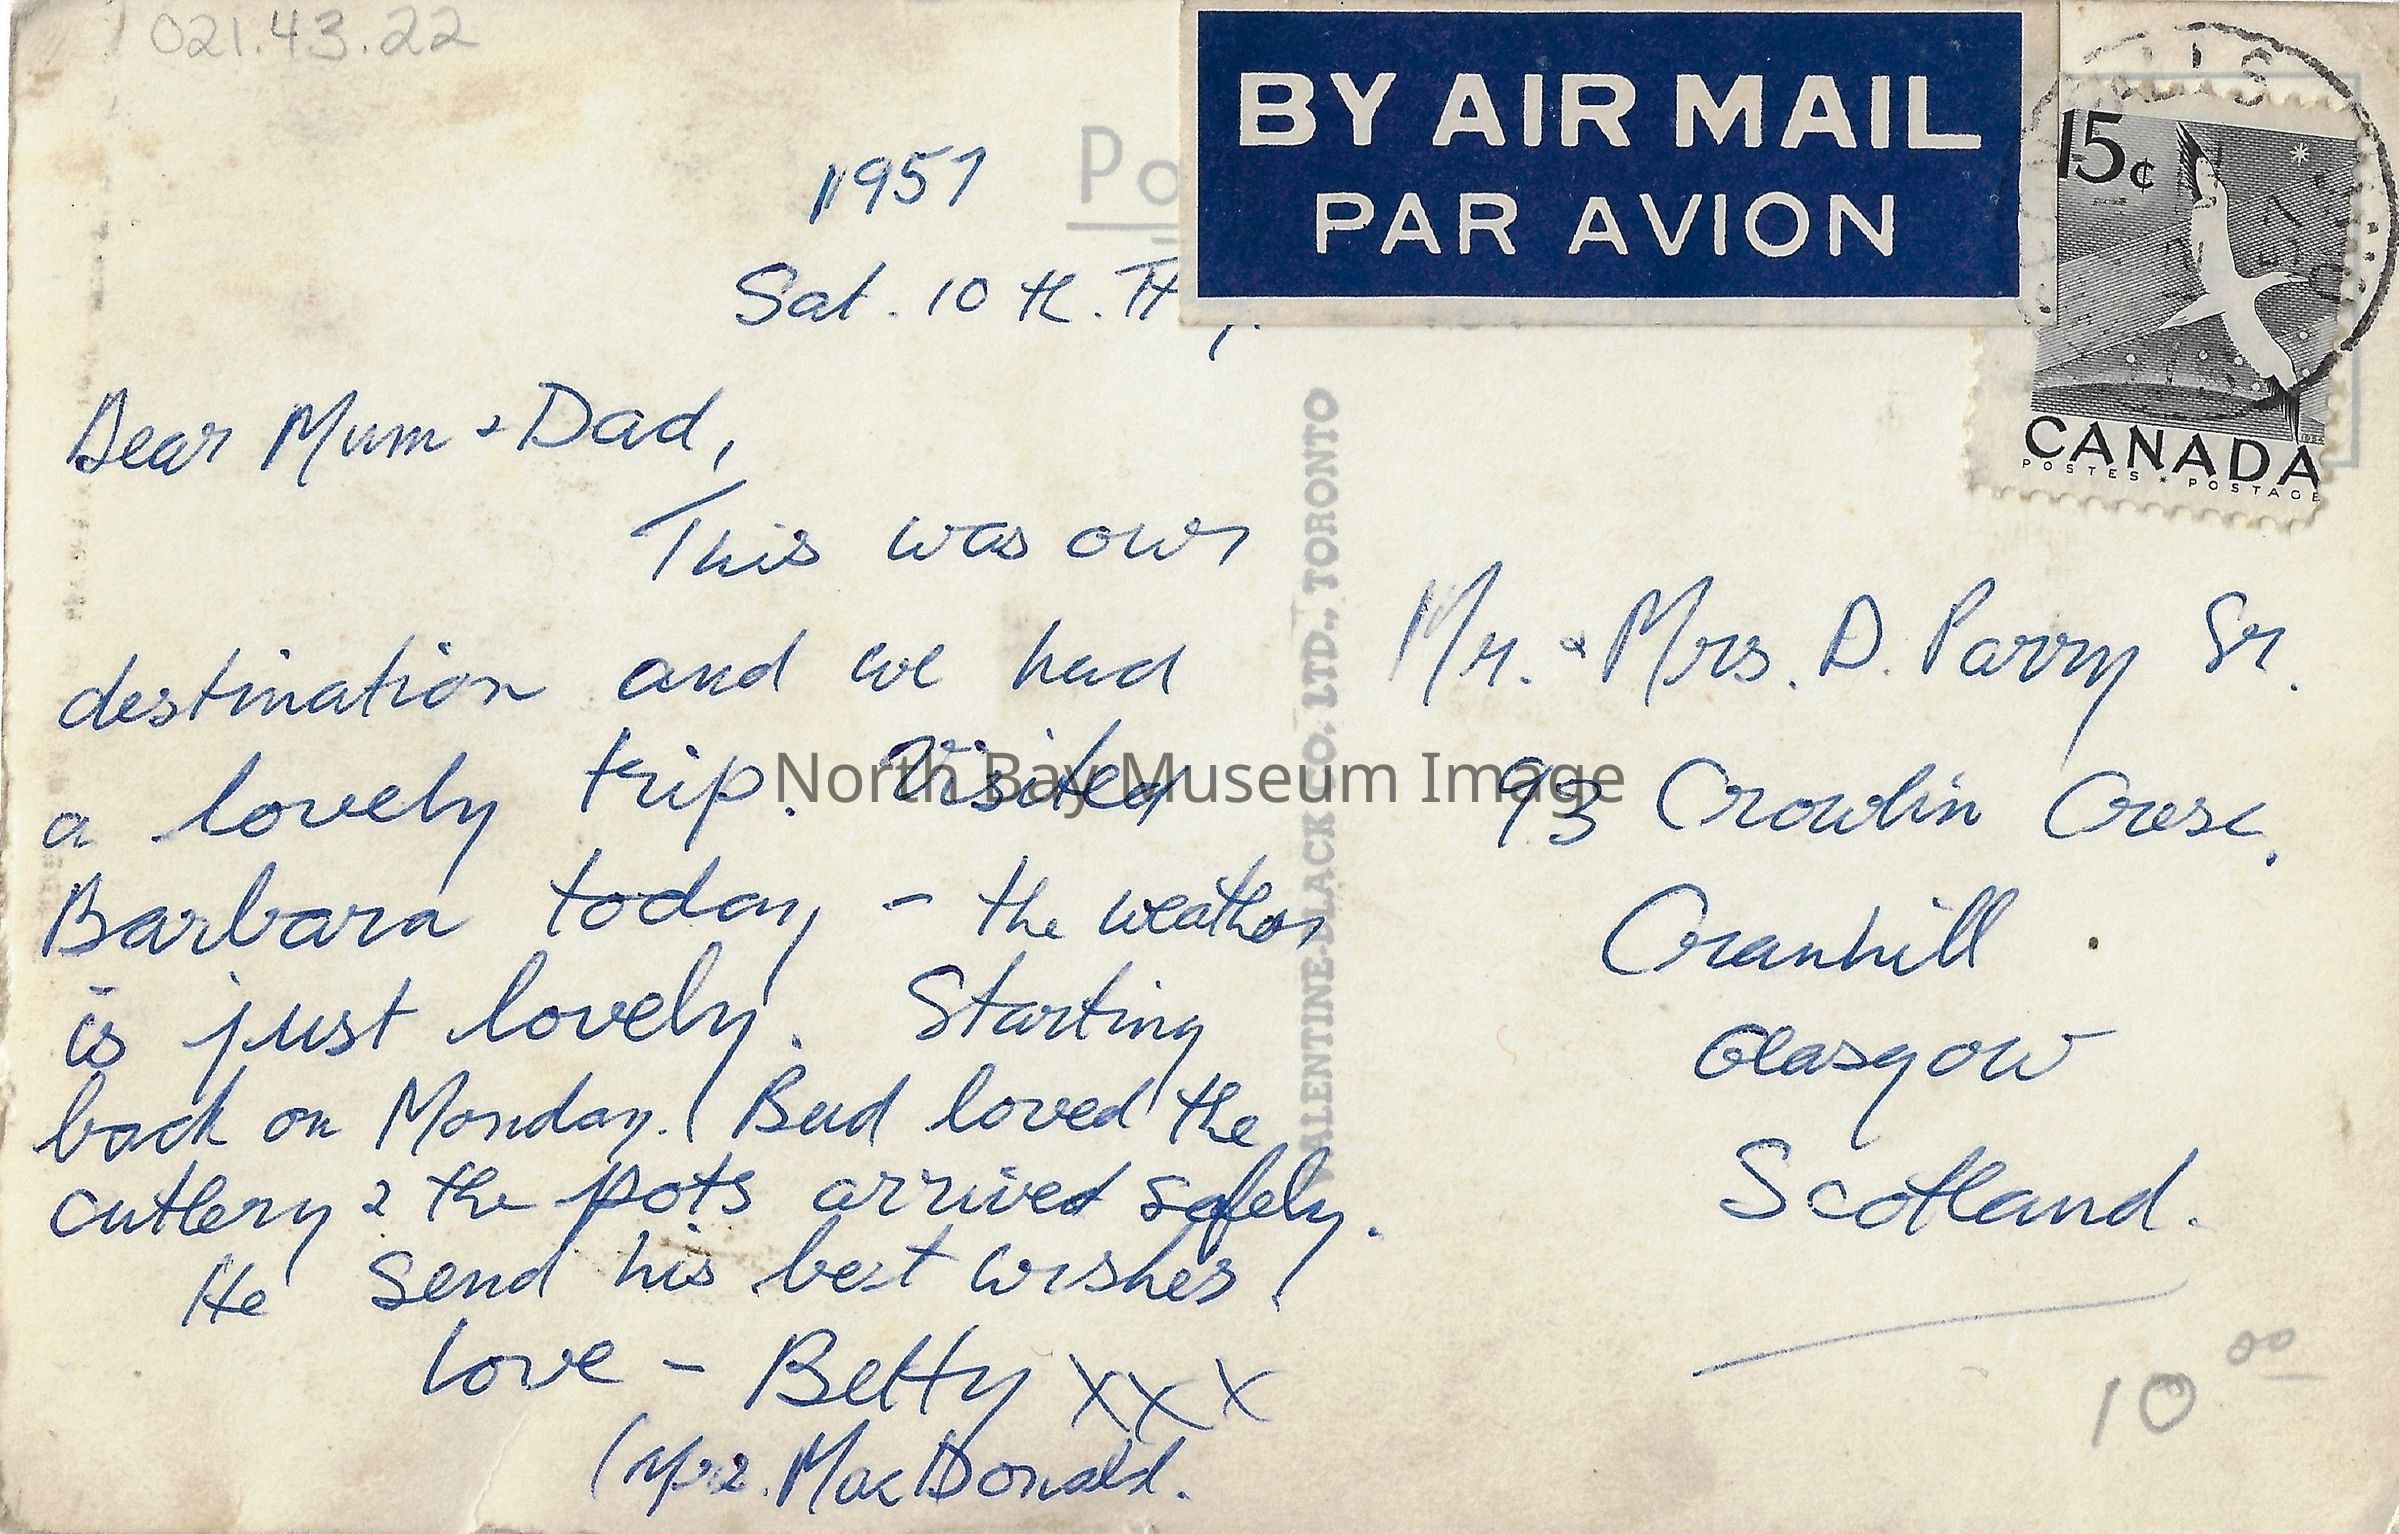 021.43.22
1957
Po
Sat. 10 th.
BY AIR MAIL
PAR AVION
15¢
CANADA
POSTES * POSTAGE
Dear Mum & Dad,
This was our
destination and we had
a lovely trip. Visited
Barbara today - the weather
is just lovely. Starting
back on Monday. Bud loved the
cutlery & the pots arrived safely.
He send his best wishes.
Love - Betty xxx
(Mrs. MacDonald.
VALENTINE-BLACK CO. LTD., TORONTO
Mr. & Mrs. D. Parry Sr.
93 Crowlin Cresc.
Cranhill
Glasgow
Scotland.
10 00
North Bay Museum Image